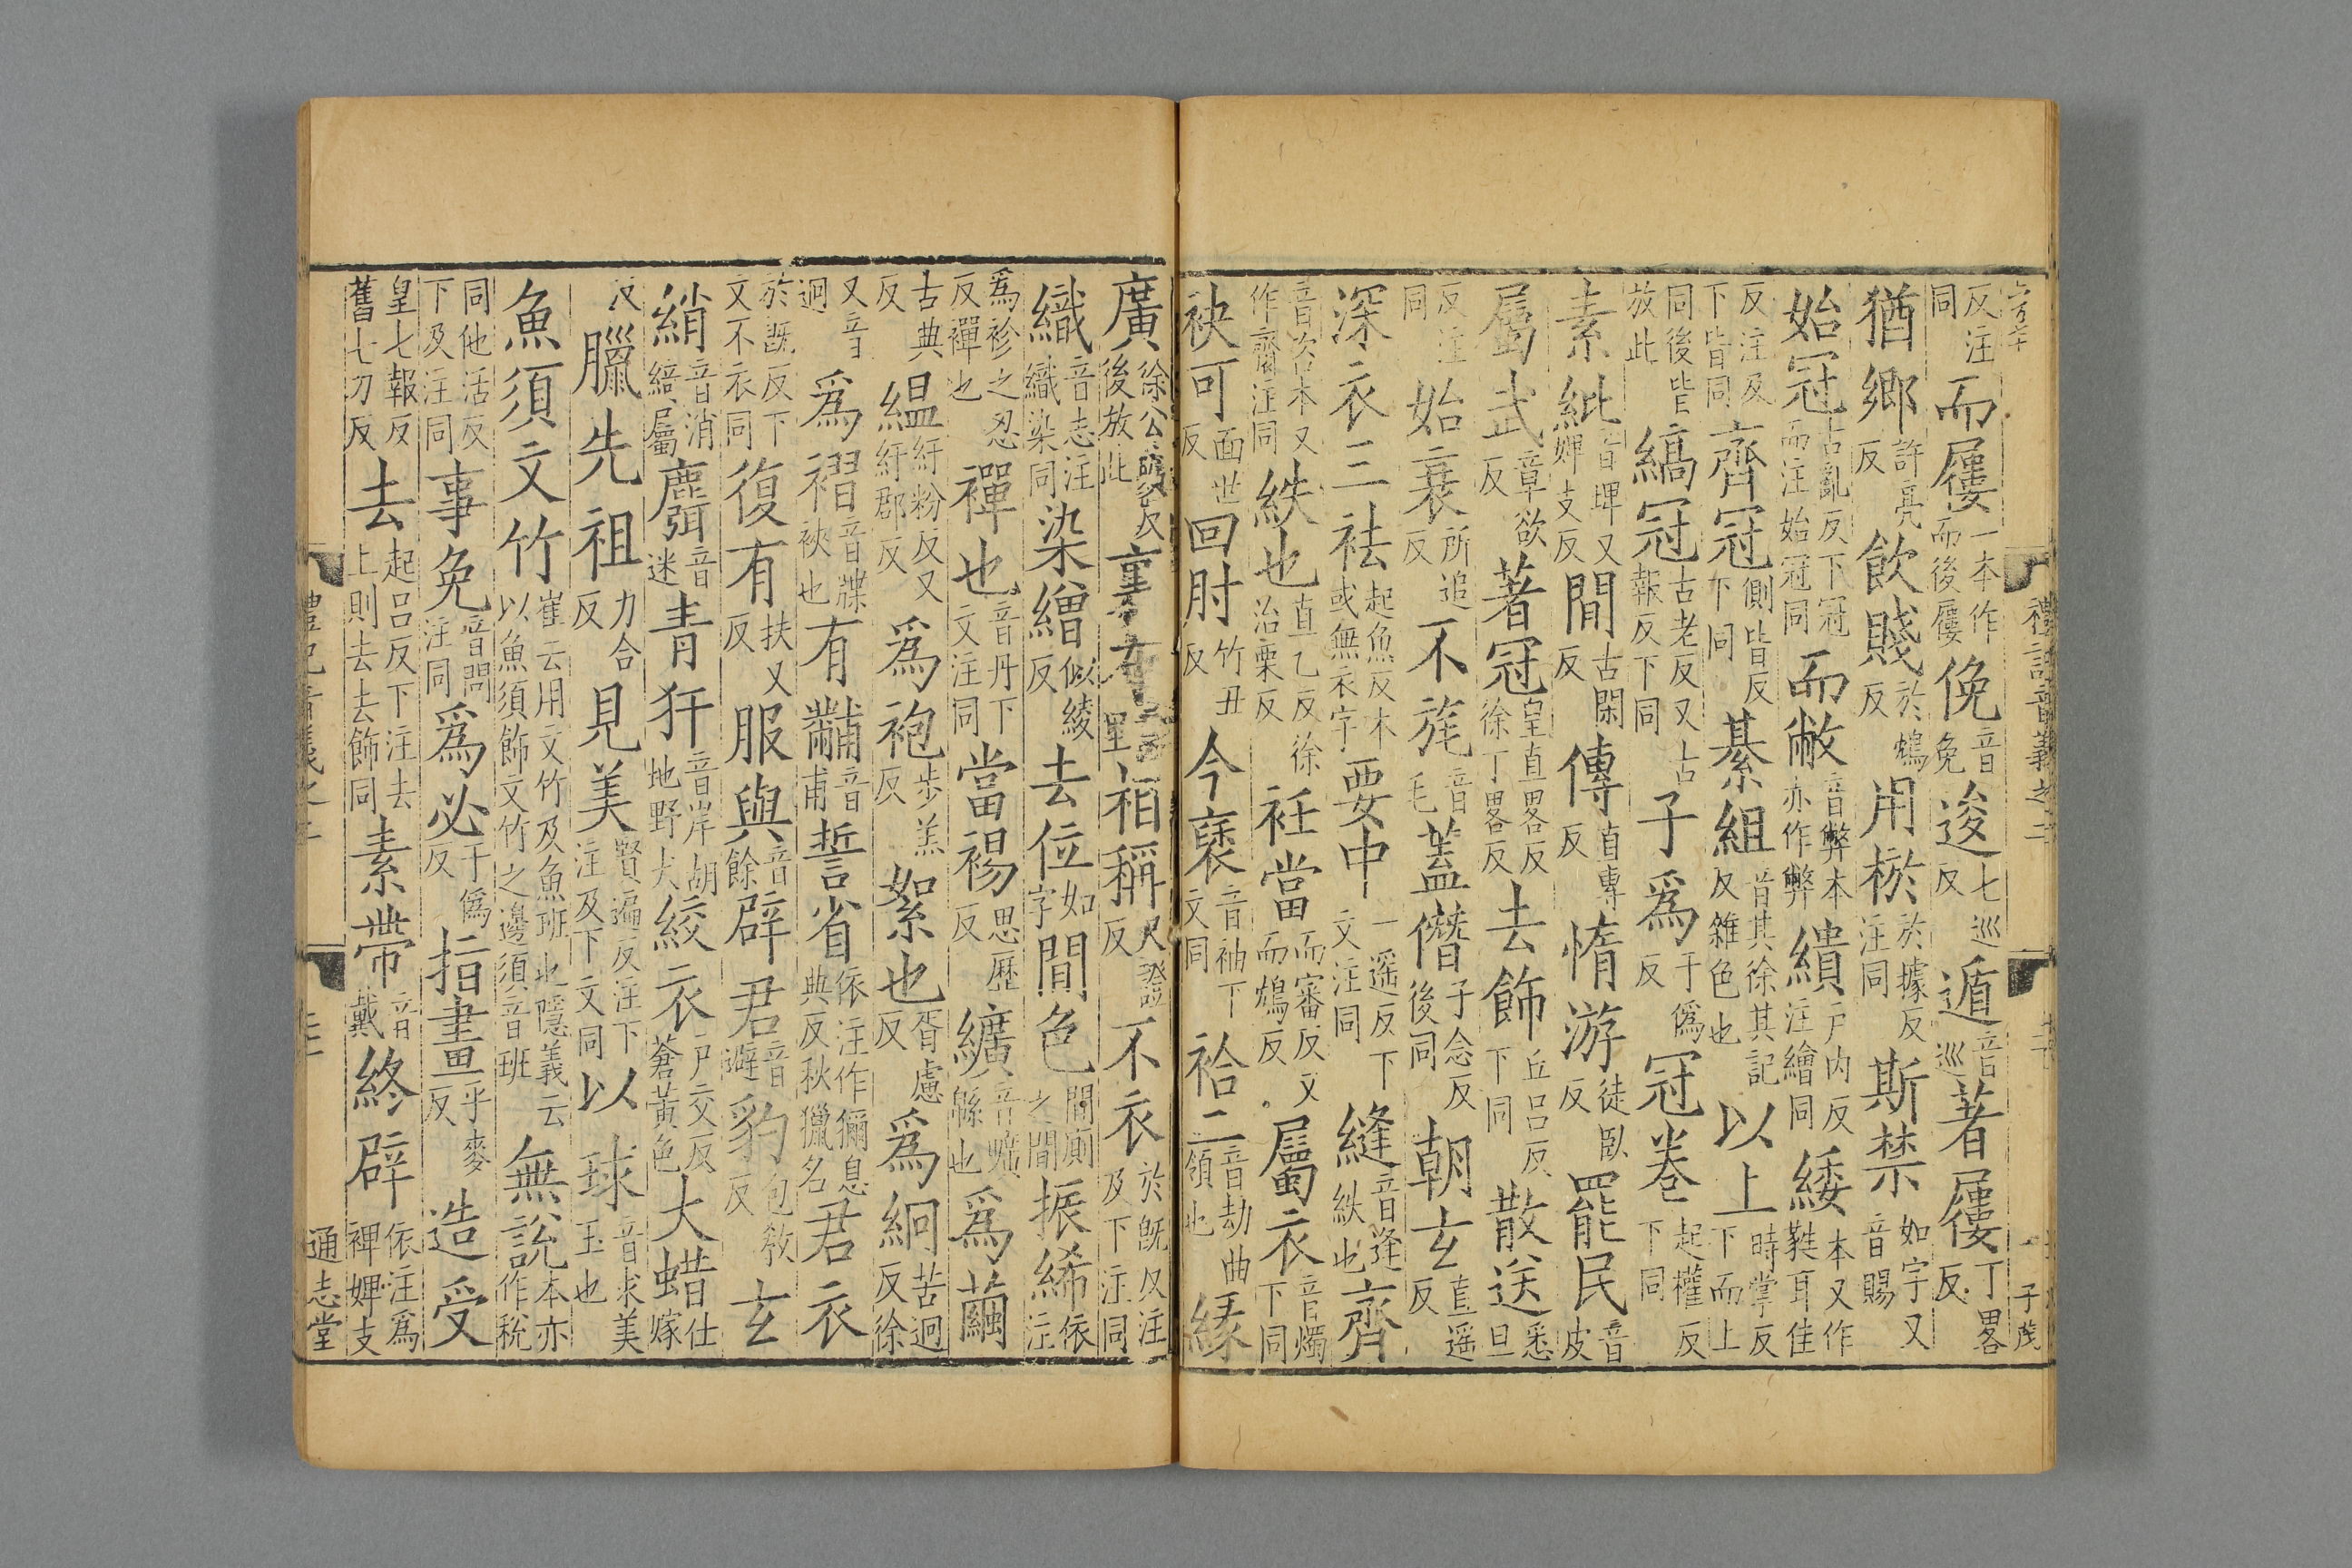 禮記音義之二
子茂
反注同而屨一本作而後屨俛音免逡七巡反遁音巡著屨丁畧反
猶鄉許亮反飲賤於鴆反用棜於據反注同斯禁如字又音賜
始冠古亂反下冠而注始冠同而敝音弊本亦作弊繢戶內反注繪同緌本又作㽔耳佳
反注及下皆同齊冠側皆反下同綦組音其徐其記反雜色也以上時掌反下而上
同後皆放此縞冠古老反又古報反下同子爲于僞反冠卷起權反下同
素紕音埤又婢支反間古閑反傳直專反惰游徒臥反罷民音皮
屬武章欲反著冠皇直畧反徐丁畧反去飾丘呂反下同散送悉旦
反注同始衰所追反不旄音毛蓋僭子念反後同朝玄直遥反
深衣三袪起魚反本或無衣字要中一遥反下文注同縫音逢紩也齊
音咨本又作齋注同紩也直乙反徐治栗反衽當而審反又而鴆反屬衣音燭下同
袂可面世反回肘竹丑反今褎音袖下文同袷二音劫曲領也緣
廣徐公曠反後放此裏布音里袹稱尺證反不衣於旣反注及下注同
織音志注織染同染繒似綾反去位如字間色間廁之間振絺依注
爲袗之忍反襌也襌也音丹下文注同當裼思歷反纊音曠緜也爲繭
古典反緼紆粉反又紆郡反爲袍步羔反絮也胥慮反爲絅苦迥反徐
又音迥爲褶音牒袂也有黼音甫誓省依注作獮息典反秋獵名君衣
於旣反下文不衣同復有扶又反服與音餘辟君音避豹包敎反玄
綃音消綺屬麛音迷青豻音岸胡地野犬絞衣戶交反蒼黃色大蜡仕嫁
反臘先祖力合反見美賢遍反注下注及下文同以球音求美玉也
魚須文竹崔云用文竹及魚班也隱義云以魚須飾文竹之邊須音班無說本亦作稅
同他活反下及注同事免音問注同爲必于僞反指畫乎麥反造受
皇七報反舊七刀反去起呂反下注去上則去去飾同素帶音戴終辟依注爲裨婢支
禮記音義之二
通志堂